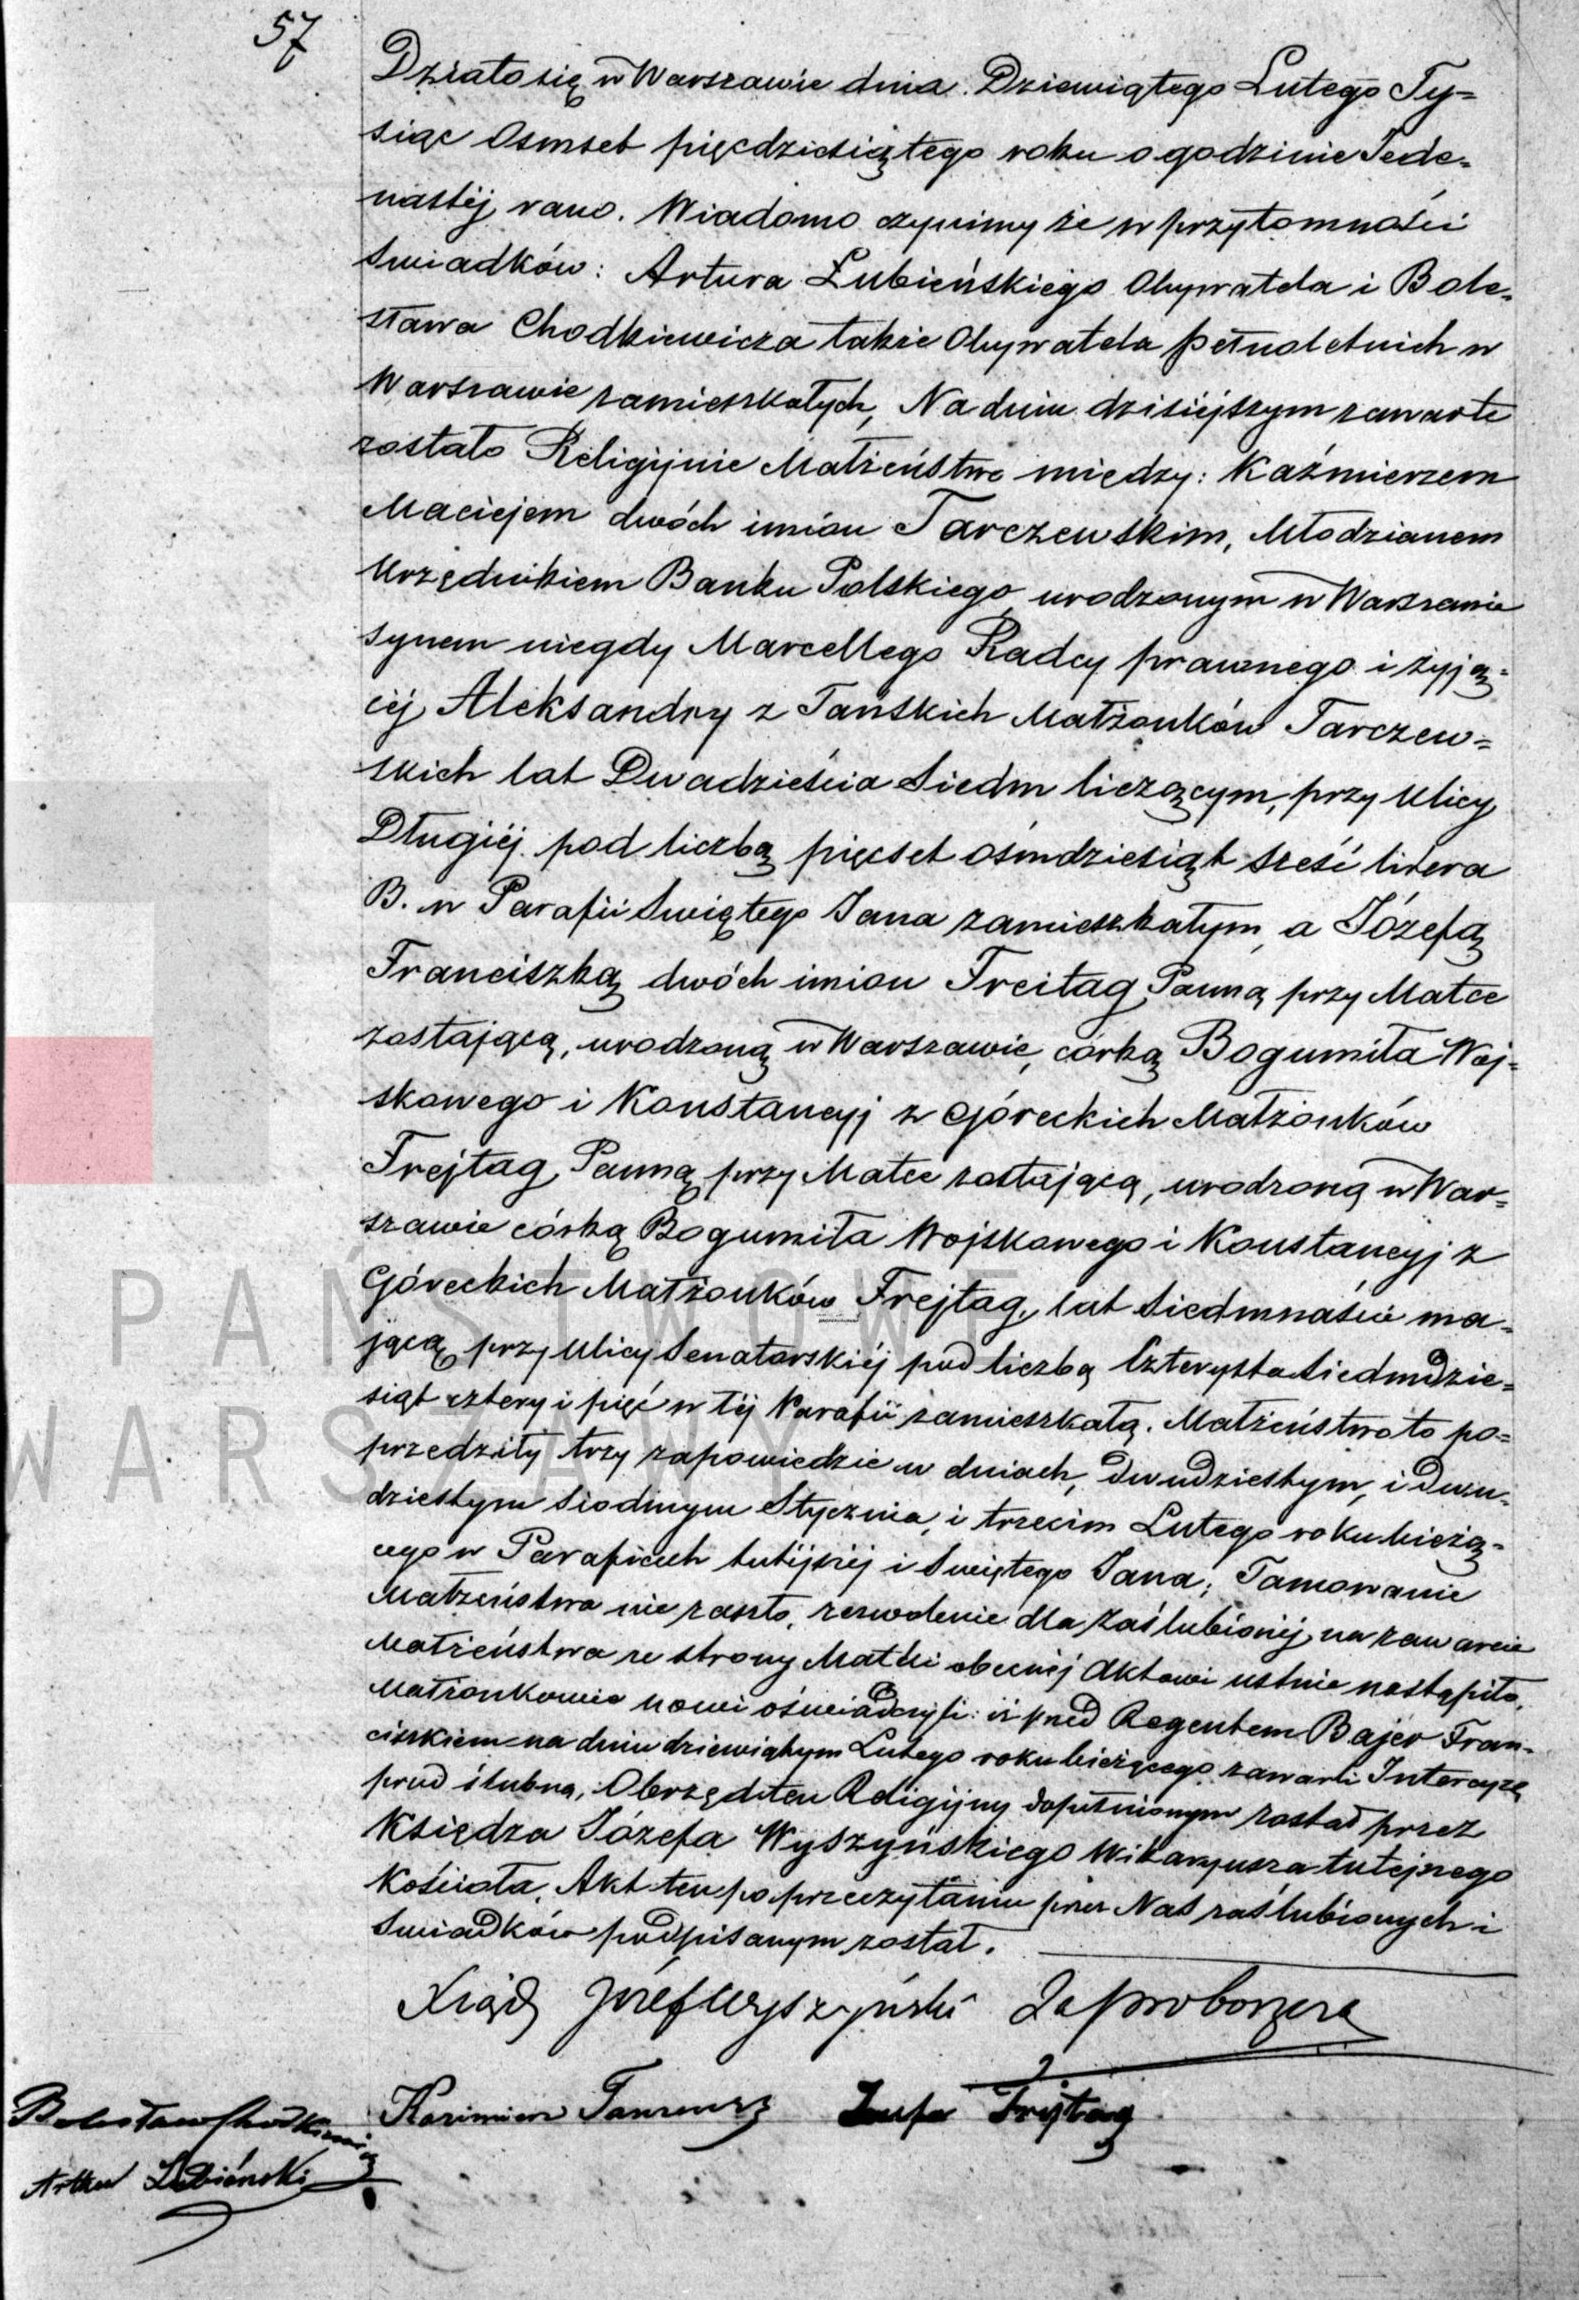 57
Działo się w Warszawie dnia Dziewiątego Lutego Ty=
siąc Osmset pięcdziesiątego roku o godzinie Jede=
nastéj rano. Wiadomo czynimy że w przytomności
Swiadków: Artura Łubieńskiego Obywatela i Bole=
sława Chodkiewicza także Obywatela pełnoletnich w
Warszawie zamieszkałych, Na dniu dzisiéjszym zawarte
zostało Religijnie Małżeństwo między: Kaźmierzem
Maciejem dwóch imion Tarczewskim, Młodzianem
Urzędnikiem Banku Polskiego urodzonym w Warszawie
synem niegdy Marcellego Radcy prawnego i żyją=
céj Aleksandry z Tańskich Małżonków Tarczew=
skich lat Dwadzieścia Siedm liczącym, przy Ulicy
Długiéj pod liczbą pięcset ośmdziesiąt sześć litera
B. w Parafii Swiętego Jana zamieszkałym, a Józefą
Franciszką dwóch imion Freitag Panną przy Matce
zostającą, urodzoną w Warszawie, córką Bogumiła Woj=
skowego i Konstancyj z Góreckich Małżonków
Frejtag, Panną przy Matce zostającą, urodzoną w War=
szawie córką Bogumiła Wojskowego i Konstancyj z
Góreckich Małżonków Frejtag, lat Siedmnaście ma=
jącą, przy Ulicy Senatorskiéj pod liczbą Czterysta Siedmdzie=
siąt cztery i pięć w téj Parafii zamieszkałą. Małżeństwo to po=
przedziły trzy zapowiedzie w dniach, dwudziestym, i dwu=
dziestym siodmym Stycznia, i trzecim Lutego roku bieżą=
cego w Parafiach tutéjszéj i Swiętego Jana; Tamowanie
Małżeństwa nie zaszło, zezwolenie dla Zaślubionéj na zawarcie
Małżeństwa ze strony Matki obecnéj Aktowi ustnie nastąpiło.
Małżonkowie nowi oświadczyli: iż przed Regentem Bajer Fran=
ciszkiem na dniu dziewiątym Lutego roku bieżącego zawarli Intercyzę
przed ślubną, Obrzęd ten Religijny dopełnionym został przez
Księdza Józefa Wyszyńskiego Wikaryusza tutejszego
Kościoła. Akt ten po przeczytaniu przez Nas zaślubionych i
Swiadków podpisanym został.
Xiądz Józef Wyszyński Za proboszcza
Bolesław Chodkiewicz Kazimierz Tarczewski Józefa Frejtag
Artur Łubieński
PAŃSTWOWE
WARSZAWY